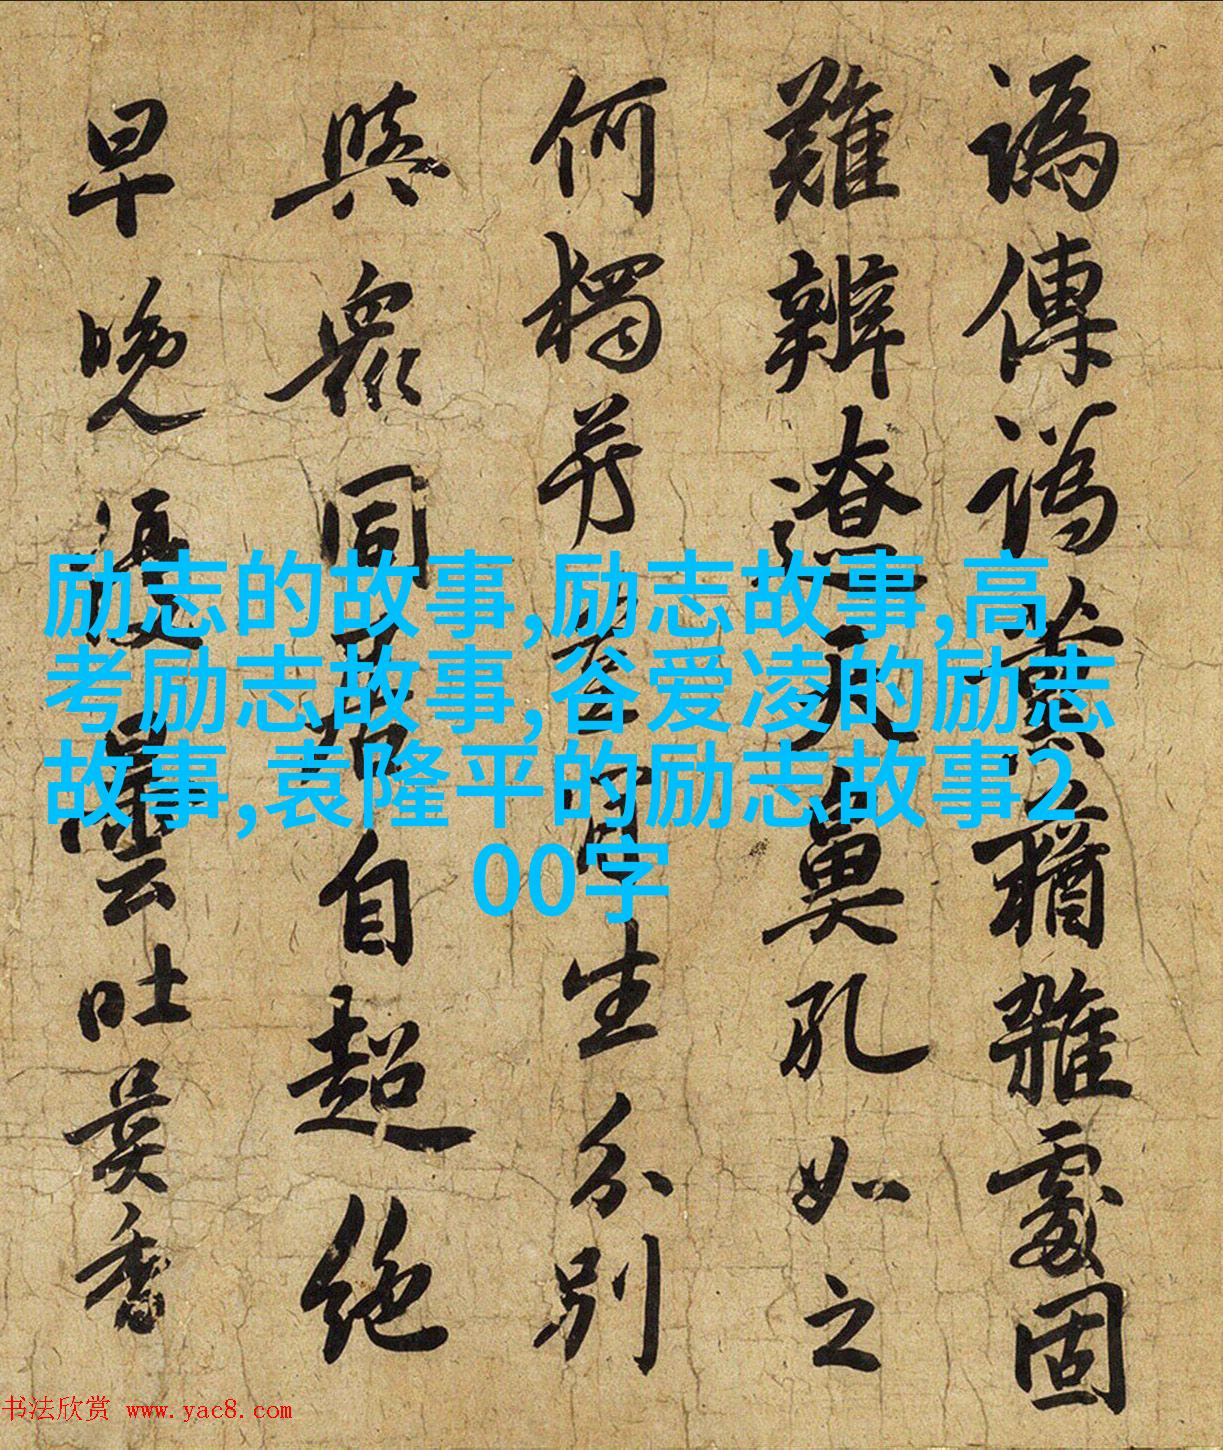 譌傳譌薰蕕雜處固
難辨遼天鼻孔如之
何獨生分別
與衆同自超絶
早晚曇吐異香
励志的故事,励志故事,高
考励志故事,谷爱凌的励志
故事,袁隆平的励志故事2
00字
书法欣赏 www.yac8.com